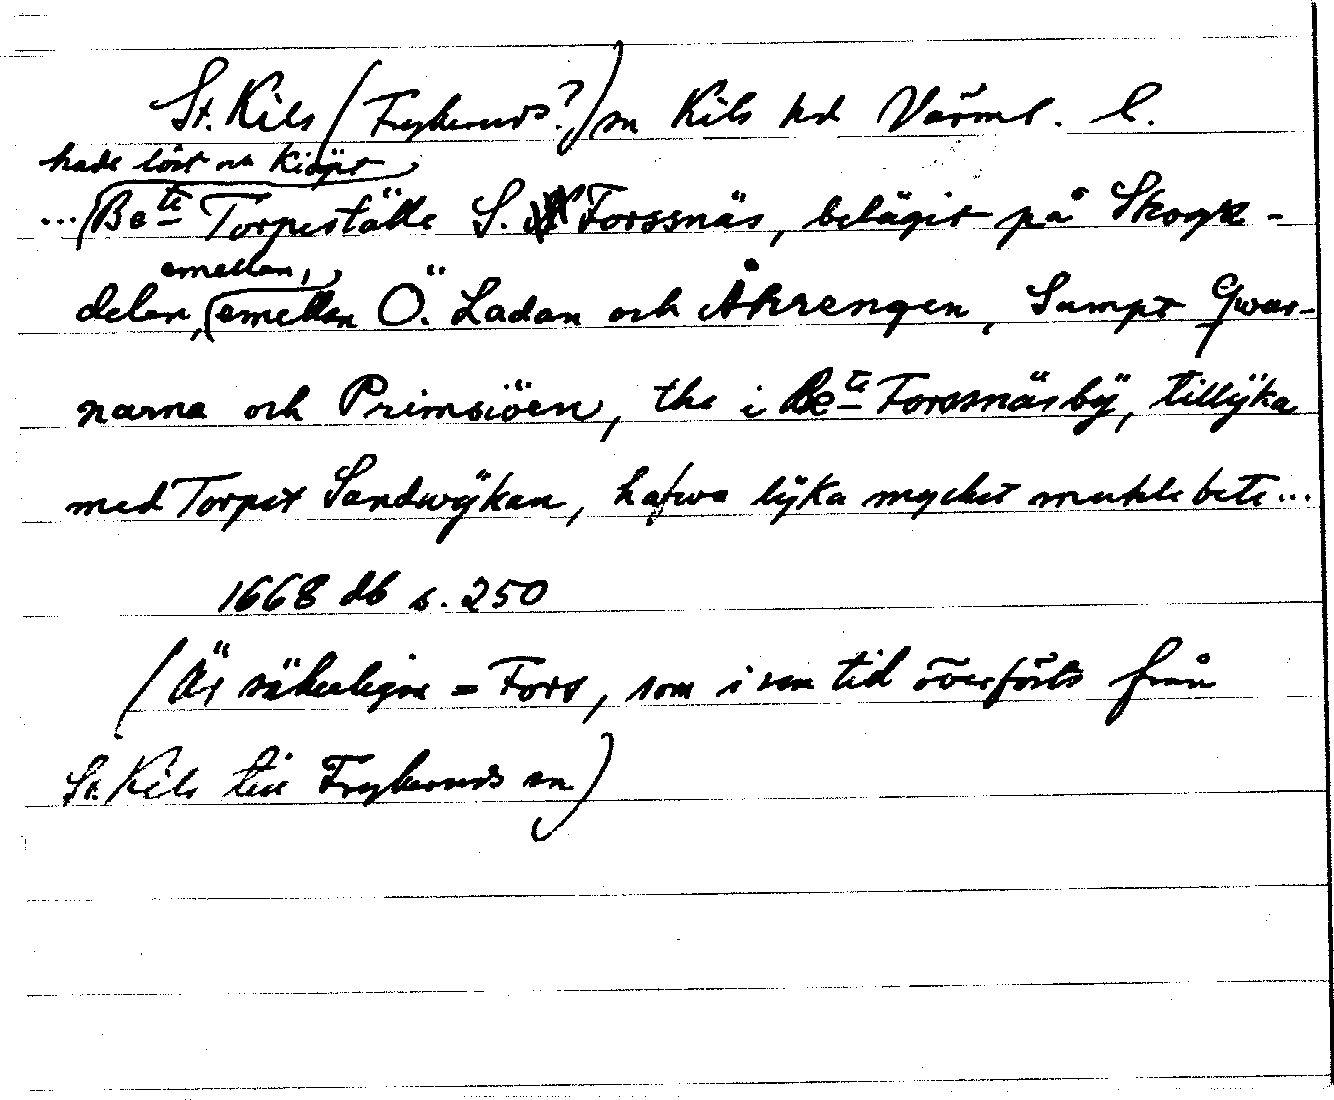 St. Kils (Frykeruds?) sn Kils hd Värml. l.
hade löst och Kiöpt
... Bete Torpeställe S. Forssnäs, belägit på Skogz-
emellan,
delen, emellan Ö. Ladan och Åkrengen, Sampt Qwar-
narna och Primsiöen, the i Bete Forssnäs bÿ, tillÿka
med Torpet Sandwÿkan, hafwa lÿka mycket muhlebete...
1668 db s. 250
(Är säkerligen = Fors, som i sen tid överförts från
St. Kils till Frykeruds sn)